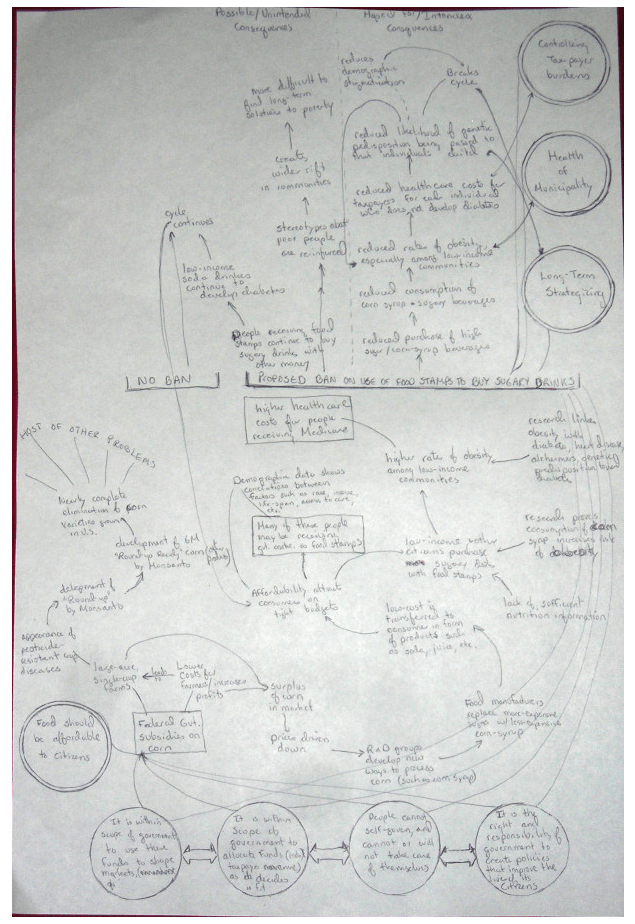 Possible/Unintended
Consequences
Hoped For/Intended
Consequences
Controlling
Taxpayer
burdens
reduces
demographic
stigmatization
Breaks
cycle
more difficult to
find long-term
solutions to poverty
reduced likelihood of genetic
predisposition being passed to
that individual's
Health
of
Municipality
creates
wider rift
in communities
reduced healthcare costs for
taxpayers for each individual
who does not develop diabetes
cycle
continues
stereotypes about
poor people
are reinforced
reduced rates of obesity
especially among low-income
communities
Long-Term
Strategizing
low-income
soda drinkers
continue to
develop diabetes
reduced consumption of
corn syrup + sugary beverages
People receiving food
stamps continue to buy
sugary drinks with
other money
reduced purchase of high
sugar/corn-syrup beverages
NO BAN
PROPOSED BAN ON USE OF FOOD STAMPS TO BUY SUGARY DRINKS
higher health care
costs for people
receiving Medicare
research links
obesity with
diabetes, heart disease,
alzheimers, genetic
predisposition toward
diabetes
HOST OF OTHER PROBLEMS
higher rate of obesity
among low-income
communities
Demographic data shows
correlations between
factors such as race, income,
life-span, access to care,
etc.
Nearly complete
elimination of corn
varieties grown
in U.S.
Many of these people
may be receiving
food stamps
research proves
consumption of corn
syrup increases risk
of obesity
development of GM
"Roundup Ready" corn
by Monsanto
low-income
citizens purchase
sugary
with food stamps
development of
"Round-up"
by Monsanto
Affordability attracts
consumers on
tight budgets
lack of sufficient
nutrition information
low-cost is
transferred to
consumer in form
of products such
as soda, juice, etc.
appearance of
pesticide-
resistant
diseases
large-
farms
leads
to
Lower
costs for
farmers/increases
profits
surplus
of corn
in market
Food manufacturers
replace more-expensive
sugar w/less-expensive
corn-syrup
Food should
be affordable
to citizens
Federal Gvt.
subsidies on
corn
prices driven
down
R&D groups
develop new
ways to process
corn (such as corn syrup)
It is within
scope of government
to use these
funds to shape
markets,
It is within
scope of
government to
allocate funds
taxpayer revenue)
as it decides
is fit
People cannot
self-govern, and
cannot or will
not take care
of themselves
It is the
right and
responsibility of
government to
create policies
that improve the
lives of its
citizens